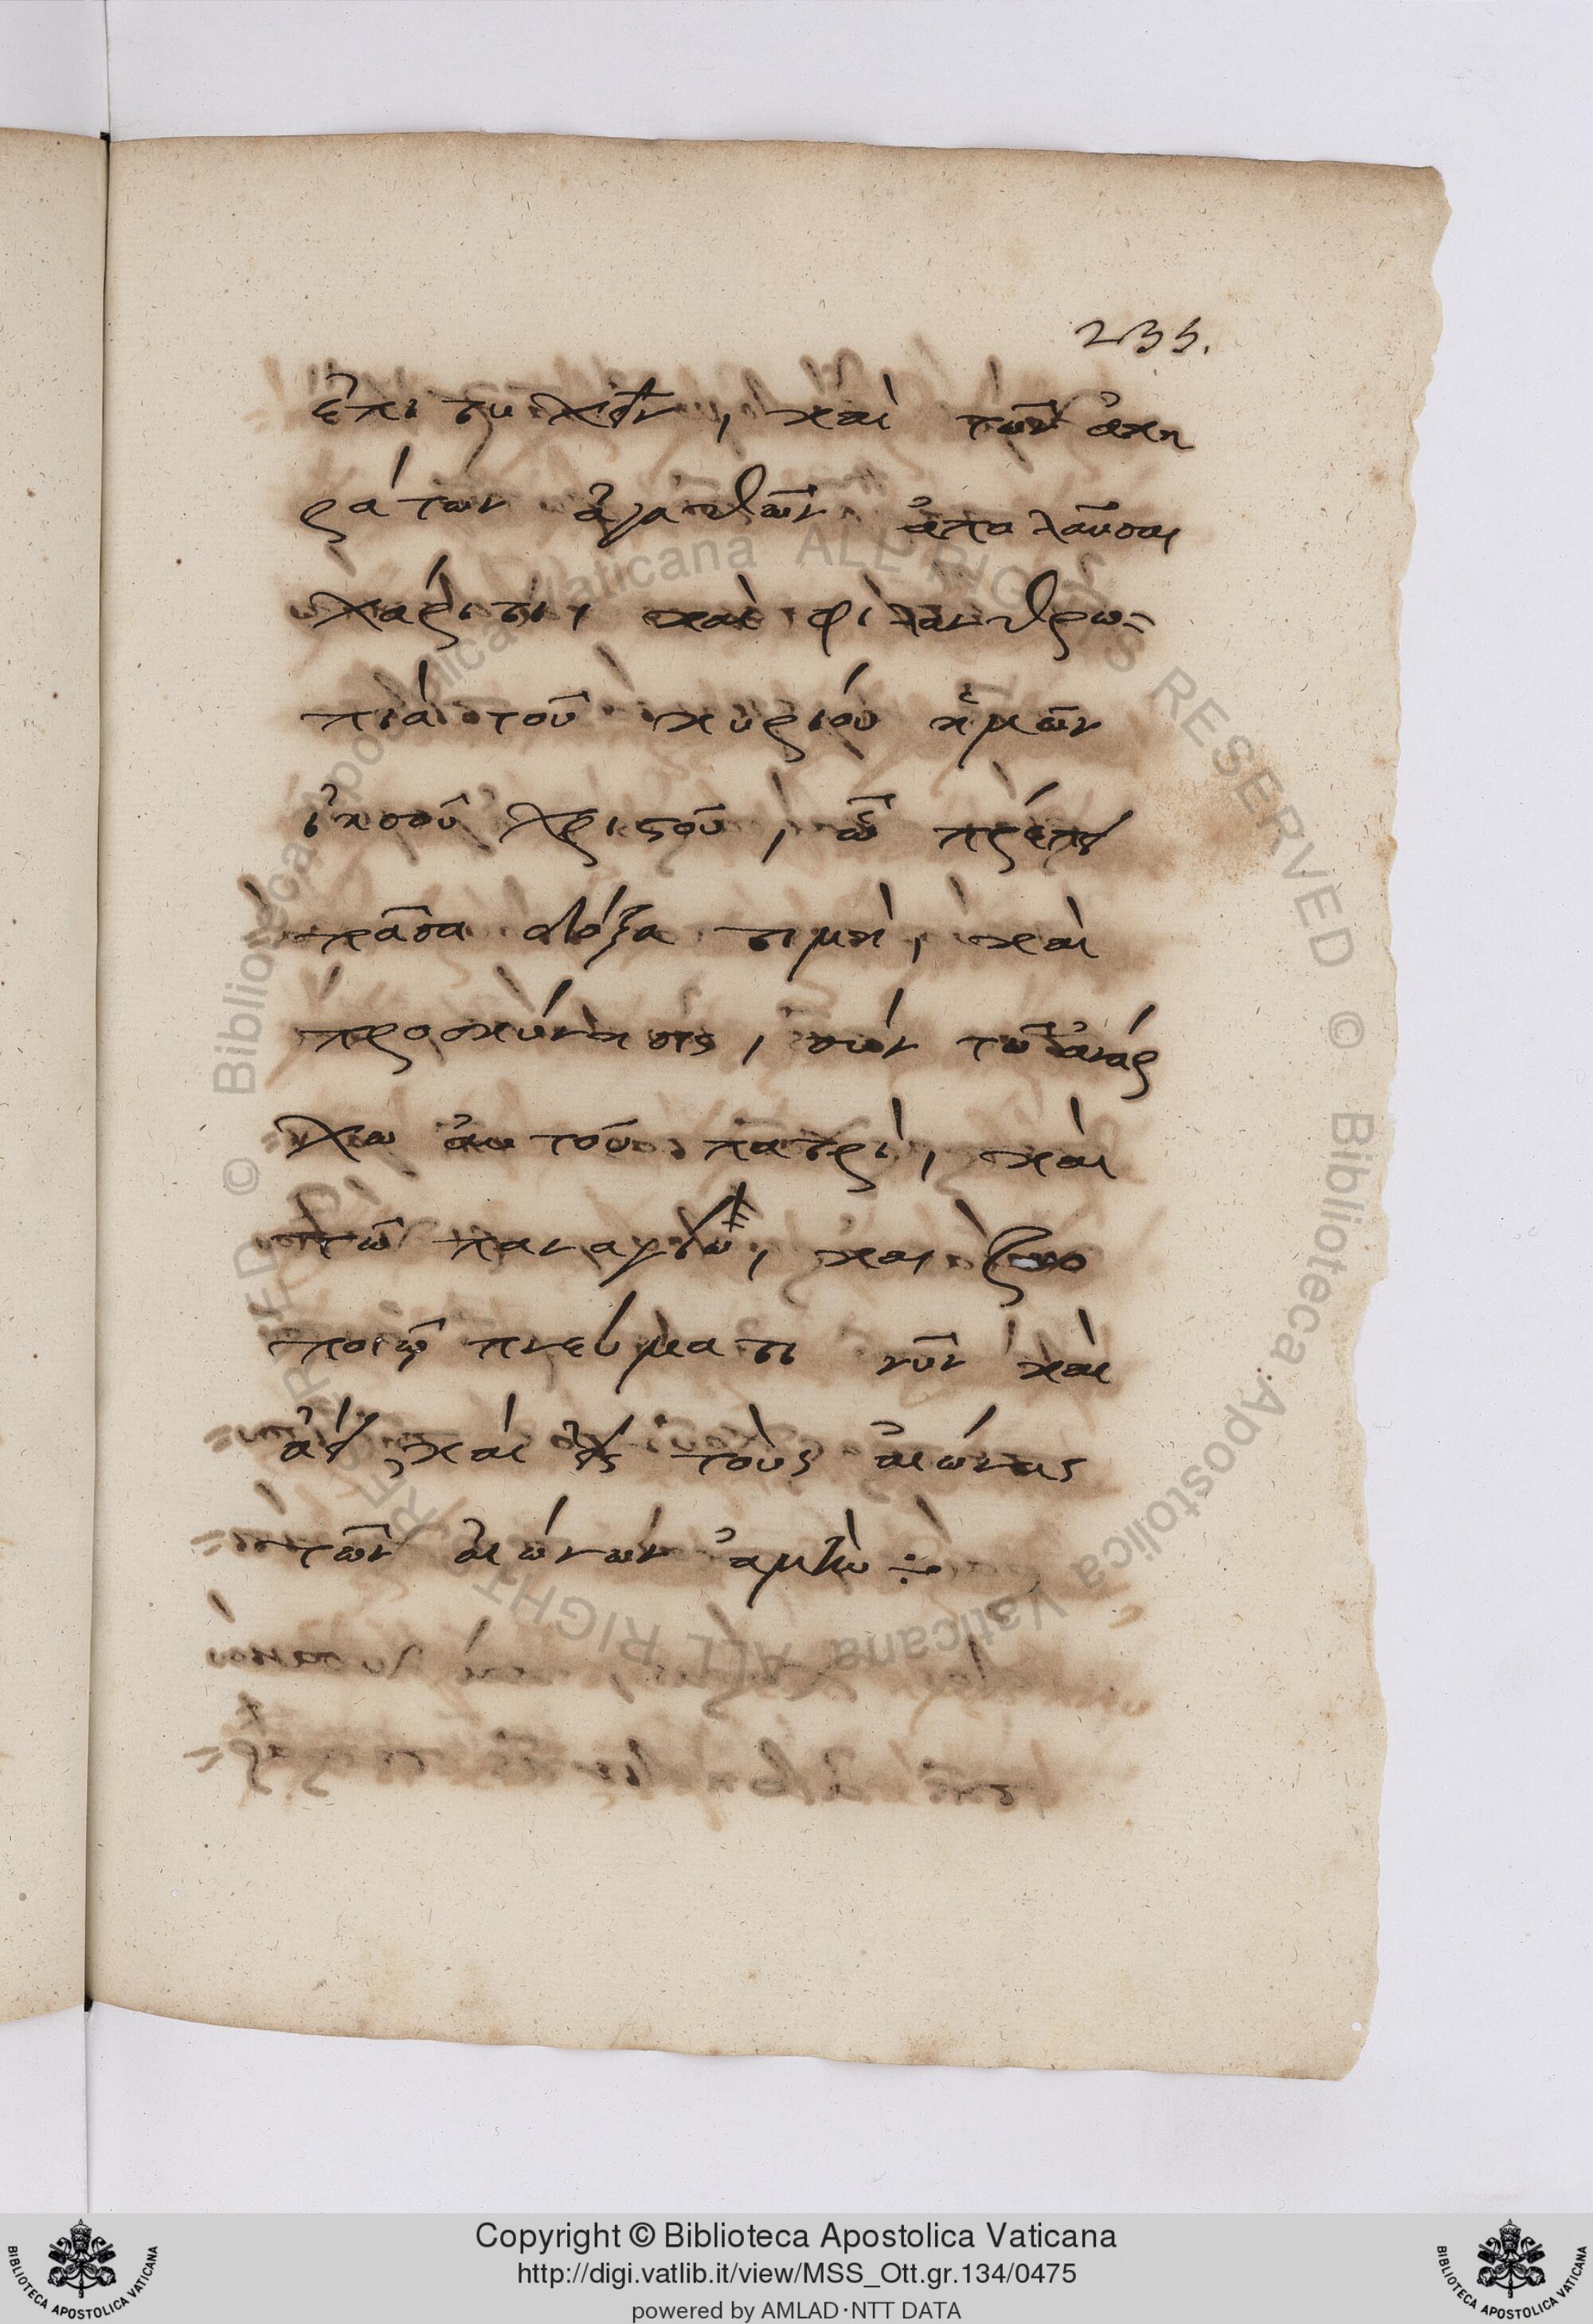 235.
ἐπιτυχεῖν, καὶ τῶν ἀκη
ράτων ἀγαθῶν ἀπολαῦσαι
χάριτι, καὶ φιλανθρω=
πία τοῦ κυρίου ἡμῶν
ἰησοῦ χριστοῦ, ὧ πρέπει
πᾶσα δόξα τιμὴ, καὶ
προσκύνησις, σὺν τῶ ἀνάρ
χω αὐτοῦ πατρὶ, καὶ
τῶ παναγίω, καὶ ζωο
ποιῶ πνεύματι νῦν καὶ
ἀεί, καὶ εἰς τοὺς αἰώνας
τῶν αἰώνων ἀμὴν ÷
Copyright © Biblioteca Apostolica Vaticana
http://digi.vatlib.it/view/MSS_Ott.gr.134/0475
powered by AMLAD·NTT DATA
© Biblioteca Apostolica Vaticana ALL RIGHTS RESERVED
© Biblioteca Apostolica Vaticana ALL RIGHTS RESERVED
BIBLIOTECA APOSTOLICA VATICANA
BIBLIOTECA APOSTOLICA VATICANA